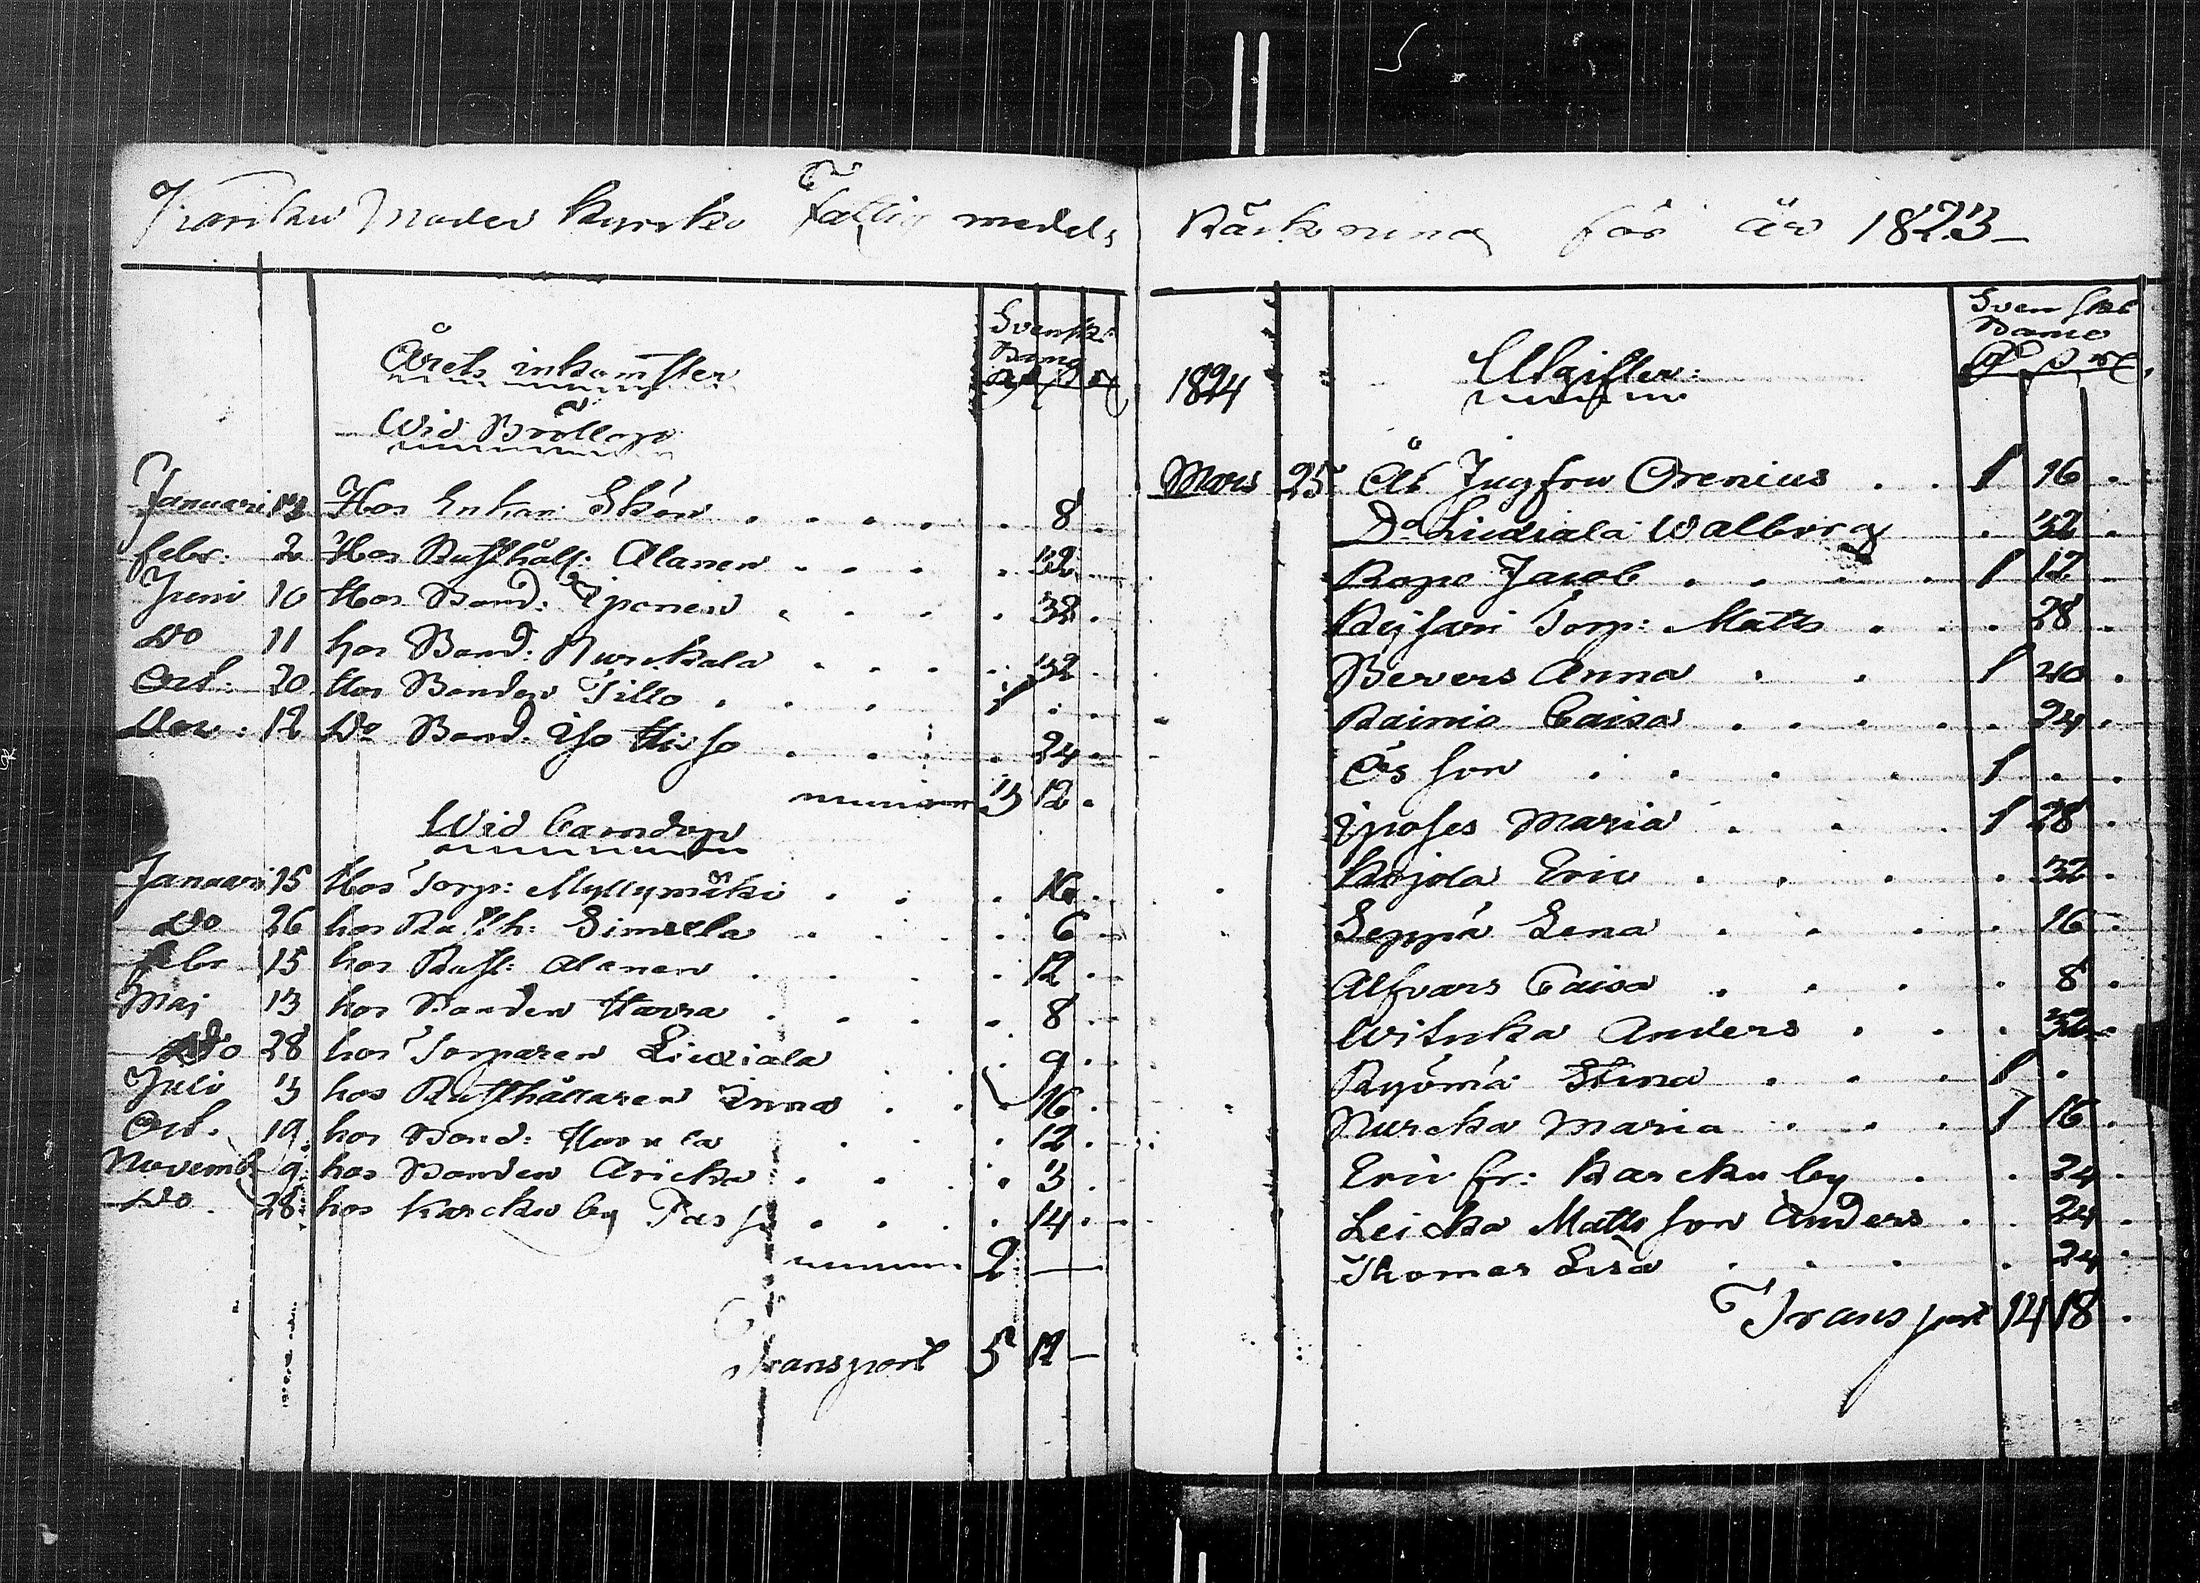 Karku Moder kyrko Fattig medels Räkning för år 1823
Svensk
Banco
Rd ß rst
Årets inkomster
Wid Bröllop
Januari 13 Hos Enkan Skön . . . . . 8 .
Febr: 2 Hos Rusthåll: Alanen . . . . 32 .
Juni 10 Hos Bond: Iponen . . . . 32 .
Do 11 hos Bond: Nurckala . . . . 32 .
Oct: 20 Hos Bonden Tillo . . . 1 . .
Nov. 12 Do Bond. Iso Hiiso . . . . 24 .
3 12 .
Wid Barndop
Januari 15 Hos Torp: Myllymäki . . . 16 .
Do 26 hos Rusth: Simula . . . . 6
Febr 15 hos Rust: Alanen . . . . 12 .
Maj 13 hos Bonden Harra . . . . 8 .
Do 28 hos Torparen Liuxiala . . 9 .
Juli 3 hos Rusthållaren Inna . . . 16 .
Oct. 19 hos Bond: . . . 12 .
Novemb 9 hos Bonden Aricka . . . . 3 .
Do. 28 hos Karcku by . . . . 14 .
2 —
Transport 5 12 —
Svenskt
Banco
Rd ß rst
1824 Utgifter:
Mars 25 Åt Jugfru Orenius . . 1 16 .
Do Liuxiala Walborg . 32 .
Rapo Jacob . . . . 1 12 .
Torp: Matts . . . 28 .
Bevers Anna . . 1 20 .
Rainio Caisa . . . . . 24 .
Ds son . . . . 1 . .
Iposes Maria . . . 1 28 .
Kojola Eric . . . . 32 .
Seppä Lena . . . . 16
Alfvars Caisa . . . . 8 .
Witicka Anders . . . 32 .
Ryömä Stina . . . 1 .
Nurcka Maria . . . 1 16 .
Eric fr: Karcku by . . 24 .
Leicka Matts son Anders . . 24 .
Thomas Lisa . . . . 24 .
Transport 14 18 .